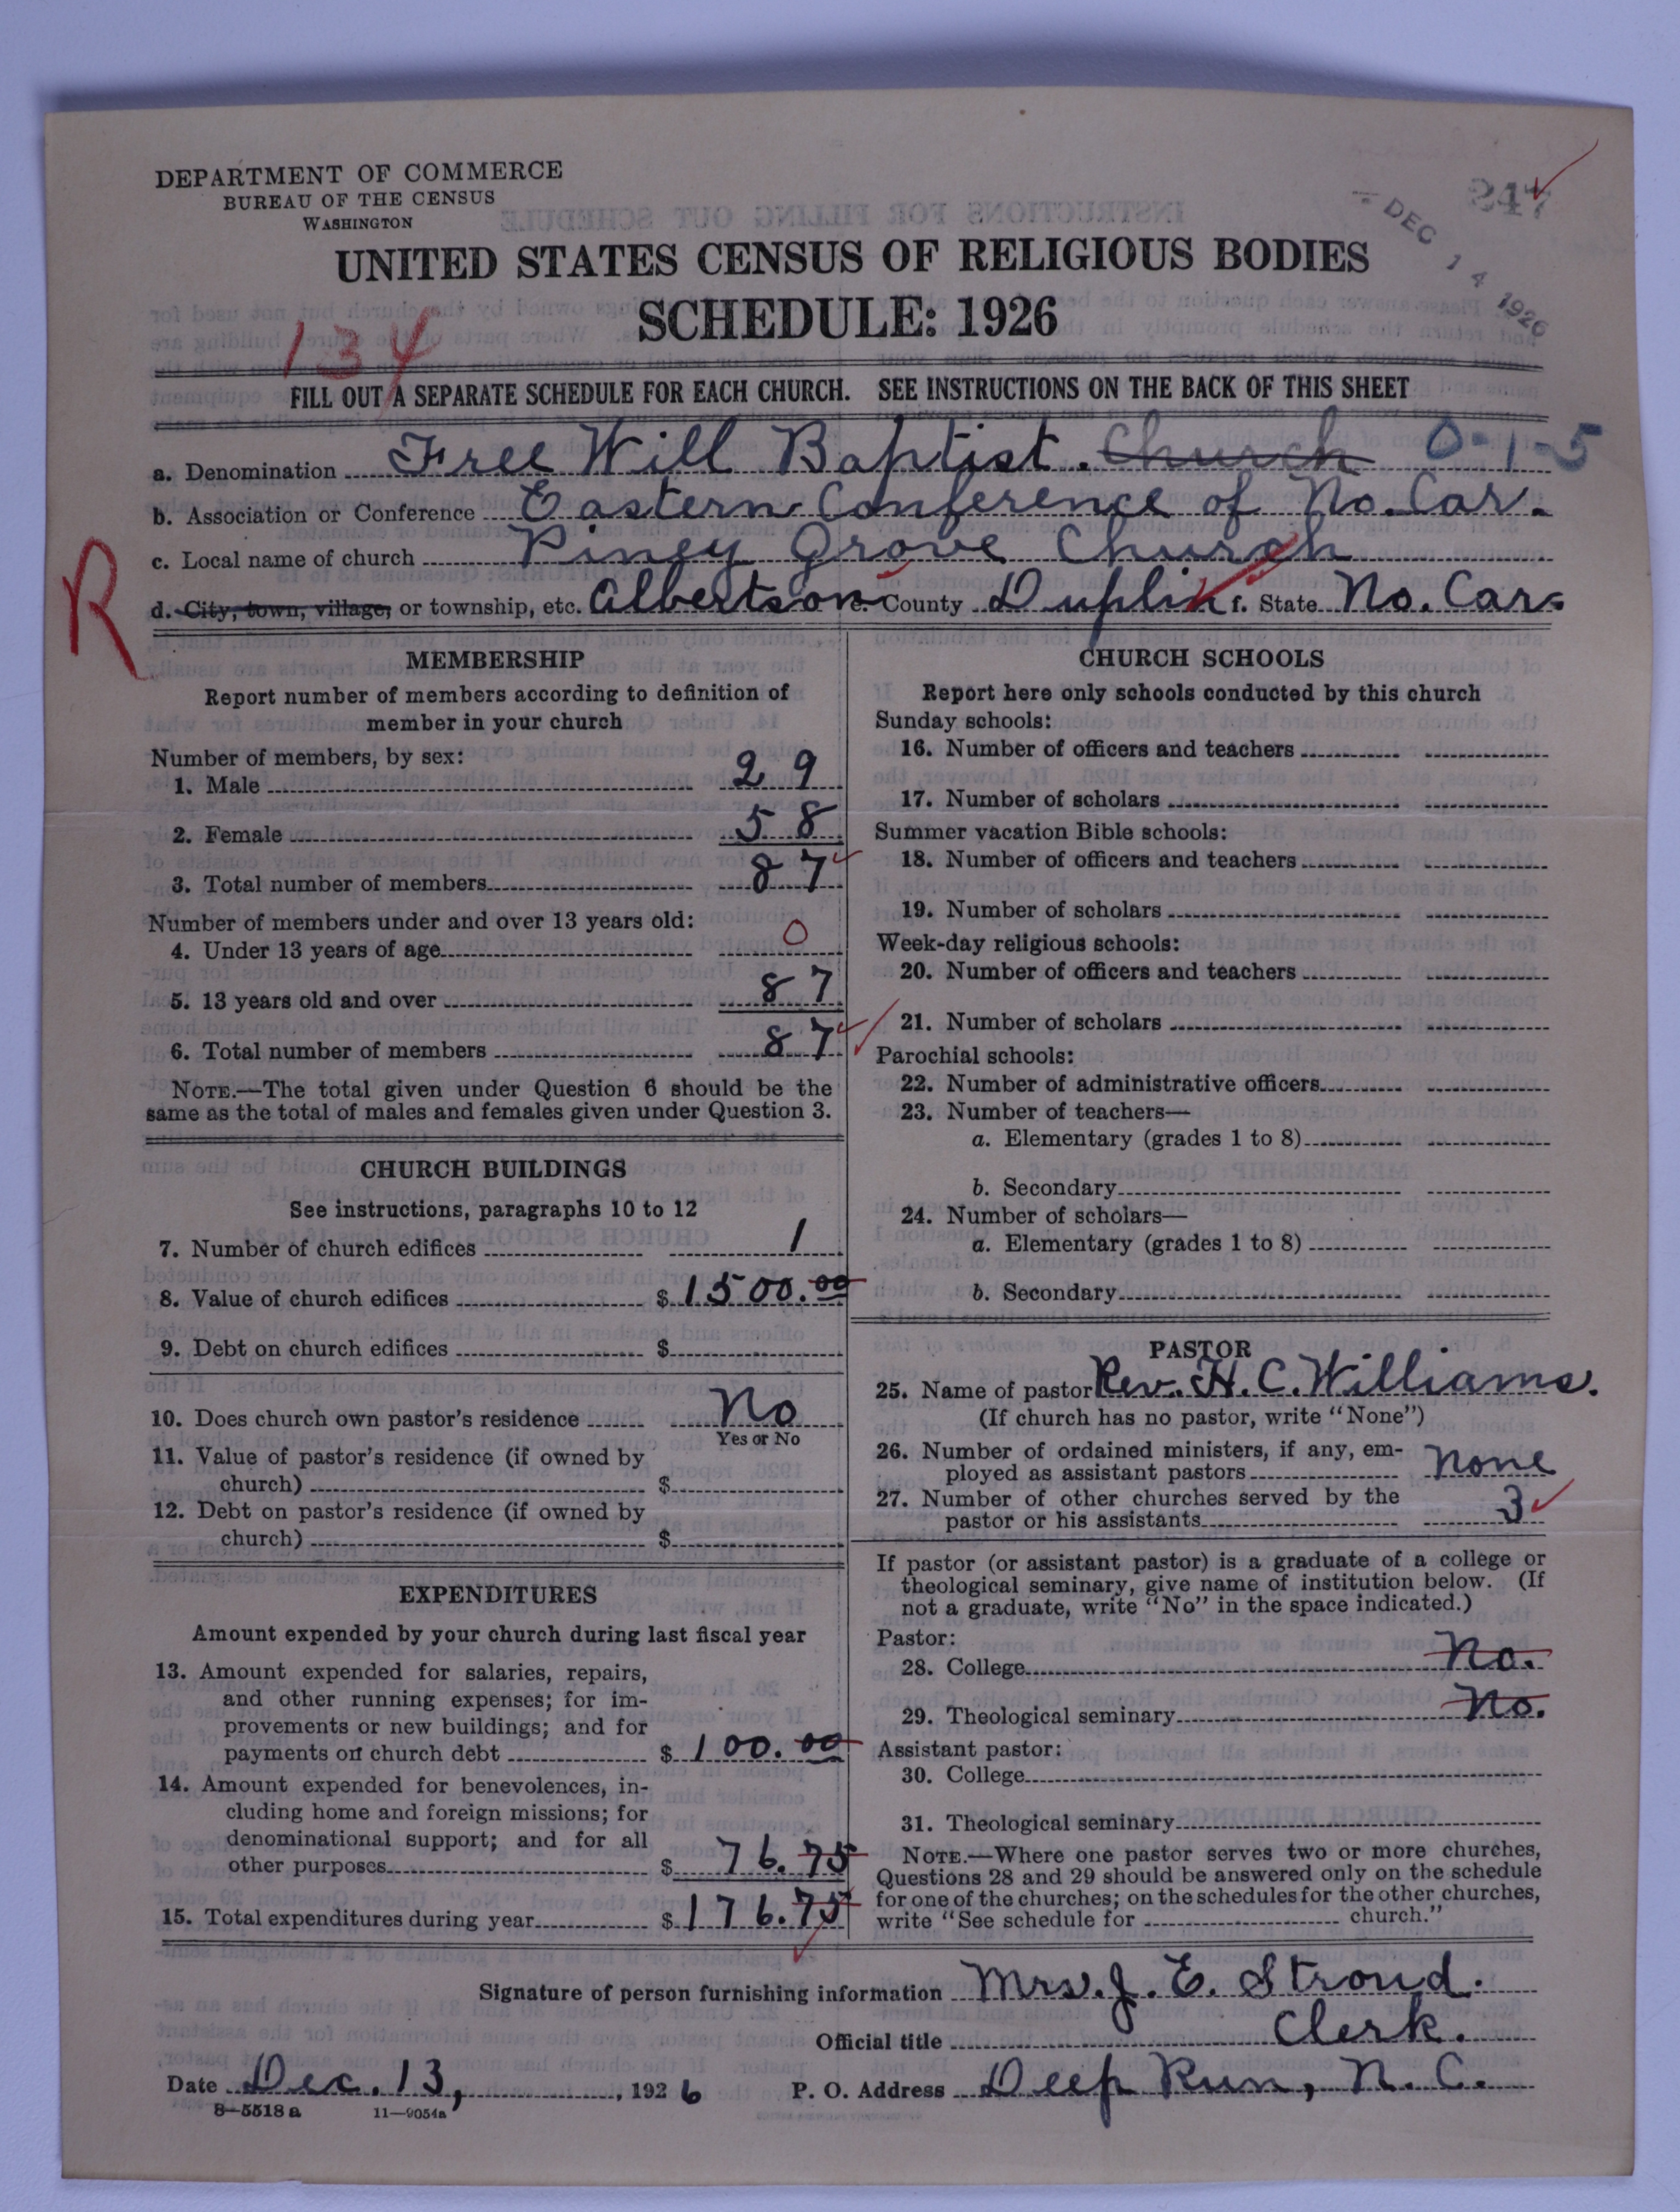 DEPARTMENT OF COMMERCE
BUREAU OF THE CENSUS
WASHINGTON
247
DEC 14 1926
UNITED STATES CENSUS OF RELIGIOUS BODIES
SCHEDULE: 1926
134
FILL OUT A SEPARATE SCHEDULE FOR EACH CHURCH. SEE INSTRUCTIONS ON THE BACK OF THIS SHEET
a. Denomination Free Will Baptist. Church 0-1-5
b. Association or Conference Eastern Conference of No. Car.
c. Local name of church Piney Grove Church
R
d. City, town, village, or township, etc. Albertson e. County Duplin f. State No. Car.
MEMBERSHIP
Report number of members according to definition of
member in your church
Number of members, by sex:
1. Male 29
2. Female 58
3. Total number of members 87
Number of members under and over 13 years old:
4. Under 13 years of age 0
5. 13 years old and over 87
6. Total number of members 87
NOTE.—The total given under Question 6 should be the
same as the total of males and females given under Question 3.
CHURCH BUILDINGS
See instructions, paragraphs 10 to 12
7. Number of church edifices 1
8. Value of church edifices $ 1500.00
9. Debt on church edifices $
10. Does church own pastor's residence No
Yes or No
11. Value of pastor's residence (if owned by
church) $
12. Debt on pastor's residence (if owned by
church) $
EXPENDITURES
Amount expended by your church during last fiscal year
13. Amount expended for salaries, repairs,
and other running expenses; for im-
provements or new buildings; and for
payments on church debt $ 100.00
14. Amount expended for benevolences, in-
cluding home and foreign missions; for
denominational support; and for all
other purposes $ 76.75
15. Total expenditures during year $ 176.75
CHURCH SCHOOLS
Report here only schools conducted by this church
Sunday schools:
16. Number of officers and teachers
17. Number of scholars
Summer vacation Bible schools:
18. Number of officers and teachers
19. Number of scholars
Week-day religious schools:
20. Number of officers and teachers
21. Number of scholars
Parochial schools:
22. Number of administrative officers
23. Number of teachers—
a. Elementary (grades 1 to 8)
b. Secondary
24. Number of scholars—
a. Elementary (grades 1 to 8)
b. Secondary
PASTOR
25. Name of pastor Rev. H. C. Williams.
(If church has no pastor, write "None")
26. Number of ordained ministers, if any, em-
ployed as assistant pastors None
27. Number of other churches served by the
pastor or his assistants 3
If pastor (or assistant pastor) is a graduate of a college or
theological seminary, give name of institution below. (If
not a graduate, write "No" in the space indicated.)
Pastor:
28. College No.
29. Theological seminary No.
Assistant pastor:
30. College
31. Theological seminary
NOTE.—Where one pastor serves two or more churches,
Questions 28 and 29 should be answered only on the schedule
for one of the churches; on the schedules for the other churches,
write "See schedule for church."
Signature of person furnishing information Mrs. J. E. Stroud.
Official title Clerk.
Date Dec. 13, 1926 P. O. Address Deep Run, N. C.
8-5518 a 11-9054a